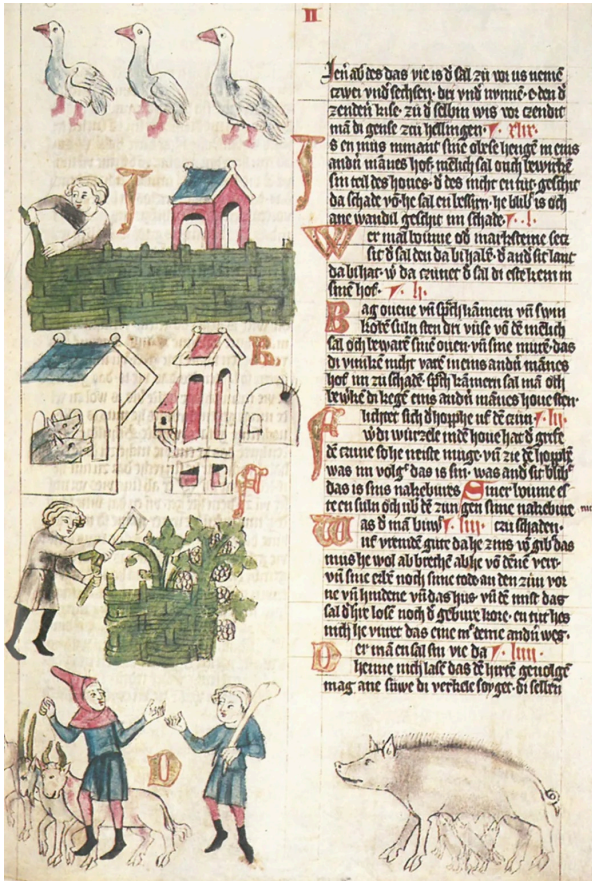 II
Jen abdes das vie is d sal zu voi us neme
czwei vnd sechsen. dri vnd nynne. e den d
zendeñ kise. zu d selbin wis voi czendit
mã di gense zcu hellingen. xlix.
Is en mus nimant sine obese hengẽ in eins
andñ mãnes hof. mẽlich sal ouch bewirkẽ
sin teil des houes. d des nicht en tut. geschit
da schade võ he sal en bessirn. he blib is och
ane wandil geschit im schade. l.
Wer mal boume od marksteine secz
zit d sal den da bi habẽ. d andsit lant
da bi hat. w da czunet d sal di este kern in
sinẽ hof. li.
Bag ouene vñ spch kamern vñ swin
koten suln sten dri vuse võ dẽ mẽlich
sal och bewarẽ sine ouen. vñ sine murẽ. das
di vunkẽ nicht varẽ in eins andñ mãnes
hof im zu schadẽ. spch kamern sal mã och
bewkẽ di kege eins andñ mãnes houe sten.
Flichtet sich d hophe uf dẽ czun. lii.
w di wurzele in dẽ houe hat d grife
dẽ czune so he neiste muge. vñ zie dẽ hophẽ
was im volgt das is sin. was and sit blibt
das is sins nakebures Siner boume es
te en suln och ub dẽ zun gen sime nakebure
Was d mã buwt. liii. czu schaden.
uf vremdẽ gute da he zins võ gibt das
mus he wol abbrechẽ ab he võ dẽne vert.
vñ sine erbe noch sime tode an den zun vor
ne vñ hindene vñ das hus. vñ dẽ mist das
sal d hre losen noch d gebure kore. en tut hes
nich he vuret das eine mt deme andñ weg.
Der mã en sal sin vie da. liiii.
heime nich lasẽ das dẽ hirtẽ geuolgẽ
mag ane suwe di verkele soyget. di selben
I
R
F
D